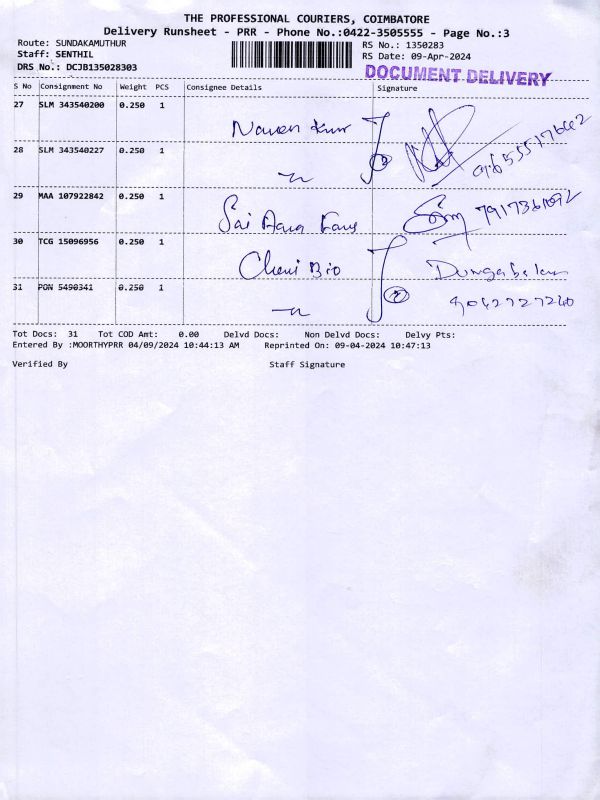 THE PROFESSIONAL COURIERS, COIMBATORE
Delivery Runsheet - PRR - Phone No.:0422-3505555 - Page No.:3
Route: SUNDAKAMUTHUR
RS No.: 1350283
Staff: SENTHIL
RS Date: 09-Apr-2024
DRS No.: DCJB135028303
DOCUMENT DELIVERY
S No Consignment No Weight PCS Consignee Details Signature
27 SLM 343540200 0.250 1
Naven kur
28 SLM 343540227 0.250 1
2
29 MAA 107922842 0.250 1
Sai
30 TCG 15096956 0.250 1
Cheni Bio
31 PON 5490341 0.250 1
2
9042727240
Tot Docs: 31 Tot COD Amt: 0.00 Delvd Docs: Non Delvd Docs: Delvy Pts:
Entered By :MOORTHYPRR 04/09/2024 10:44:13 AM Reprinted On: 09-04-2024 10:47:13
Verified By Staff Signature